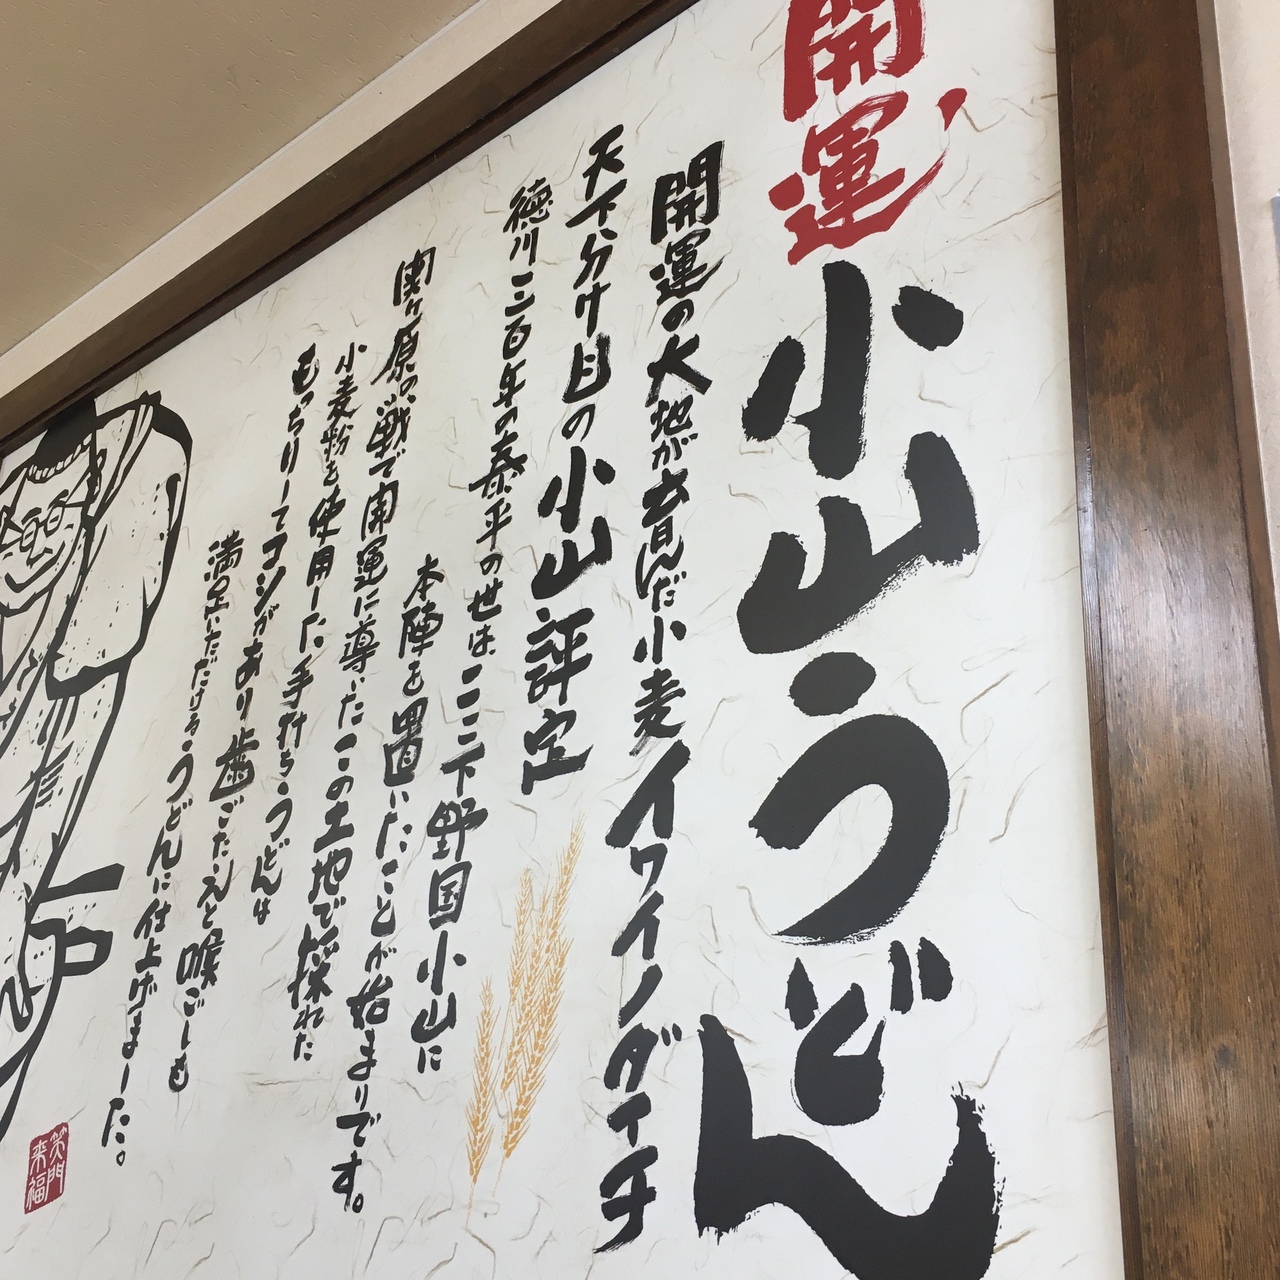 開運小山うどん
開運の大地が育んだ小麦イワイノダイチ
天下分け目の小山評定
徳川三百年の泰平の世はここ下野国小山に
本陣を置いたことが始まりです。
関ヶ原の戦で開運に導いたこの土地で採れた
小麦粉を使用した手打ちうどんは
もっちりしてコシがあり歯ごたえと喉ごしも
満足いただけるうどんに仕上げました。
笑門
来福